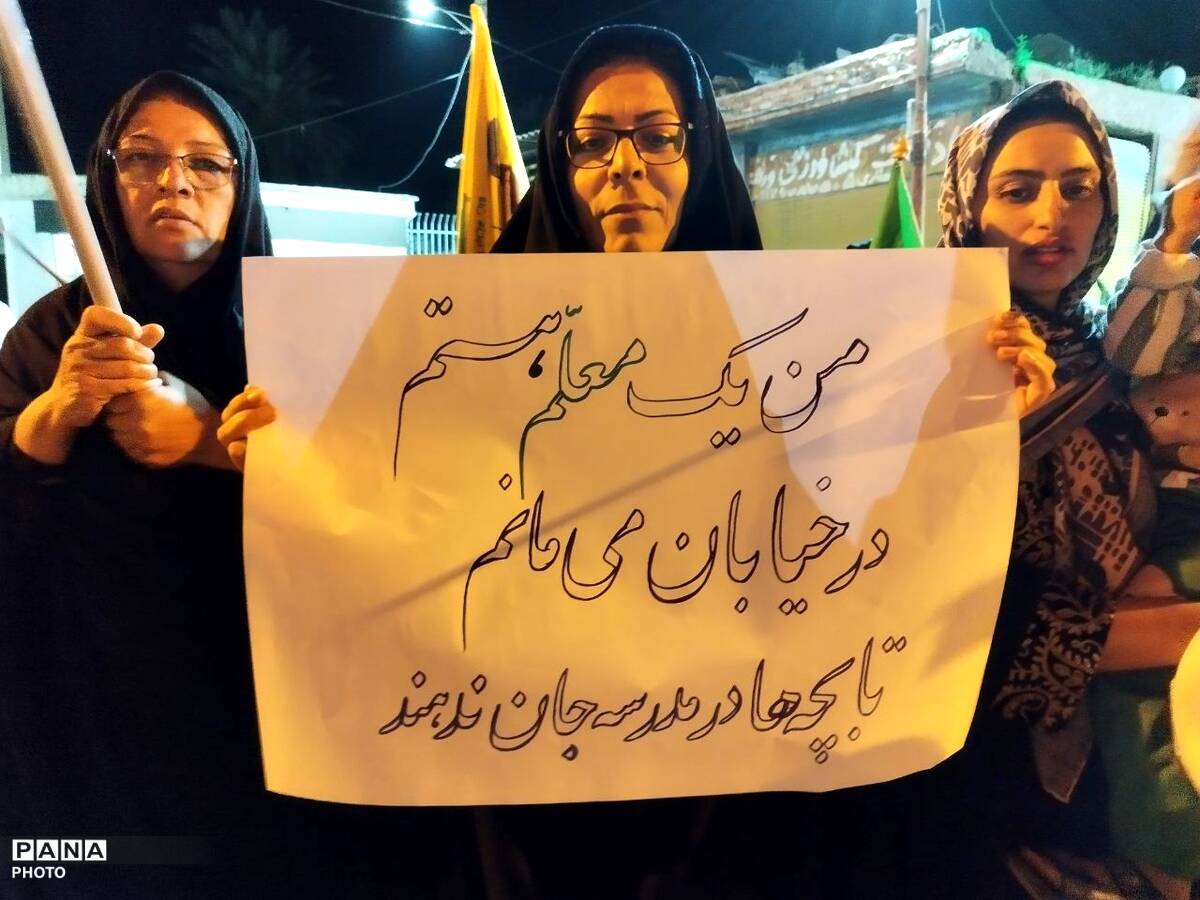 من یک معلّم هستم،
در خیابان می مانم
تا بچه ها در مدرسه جان ندهند
PANA
PHOTO